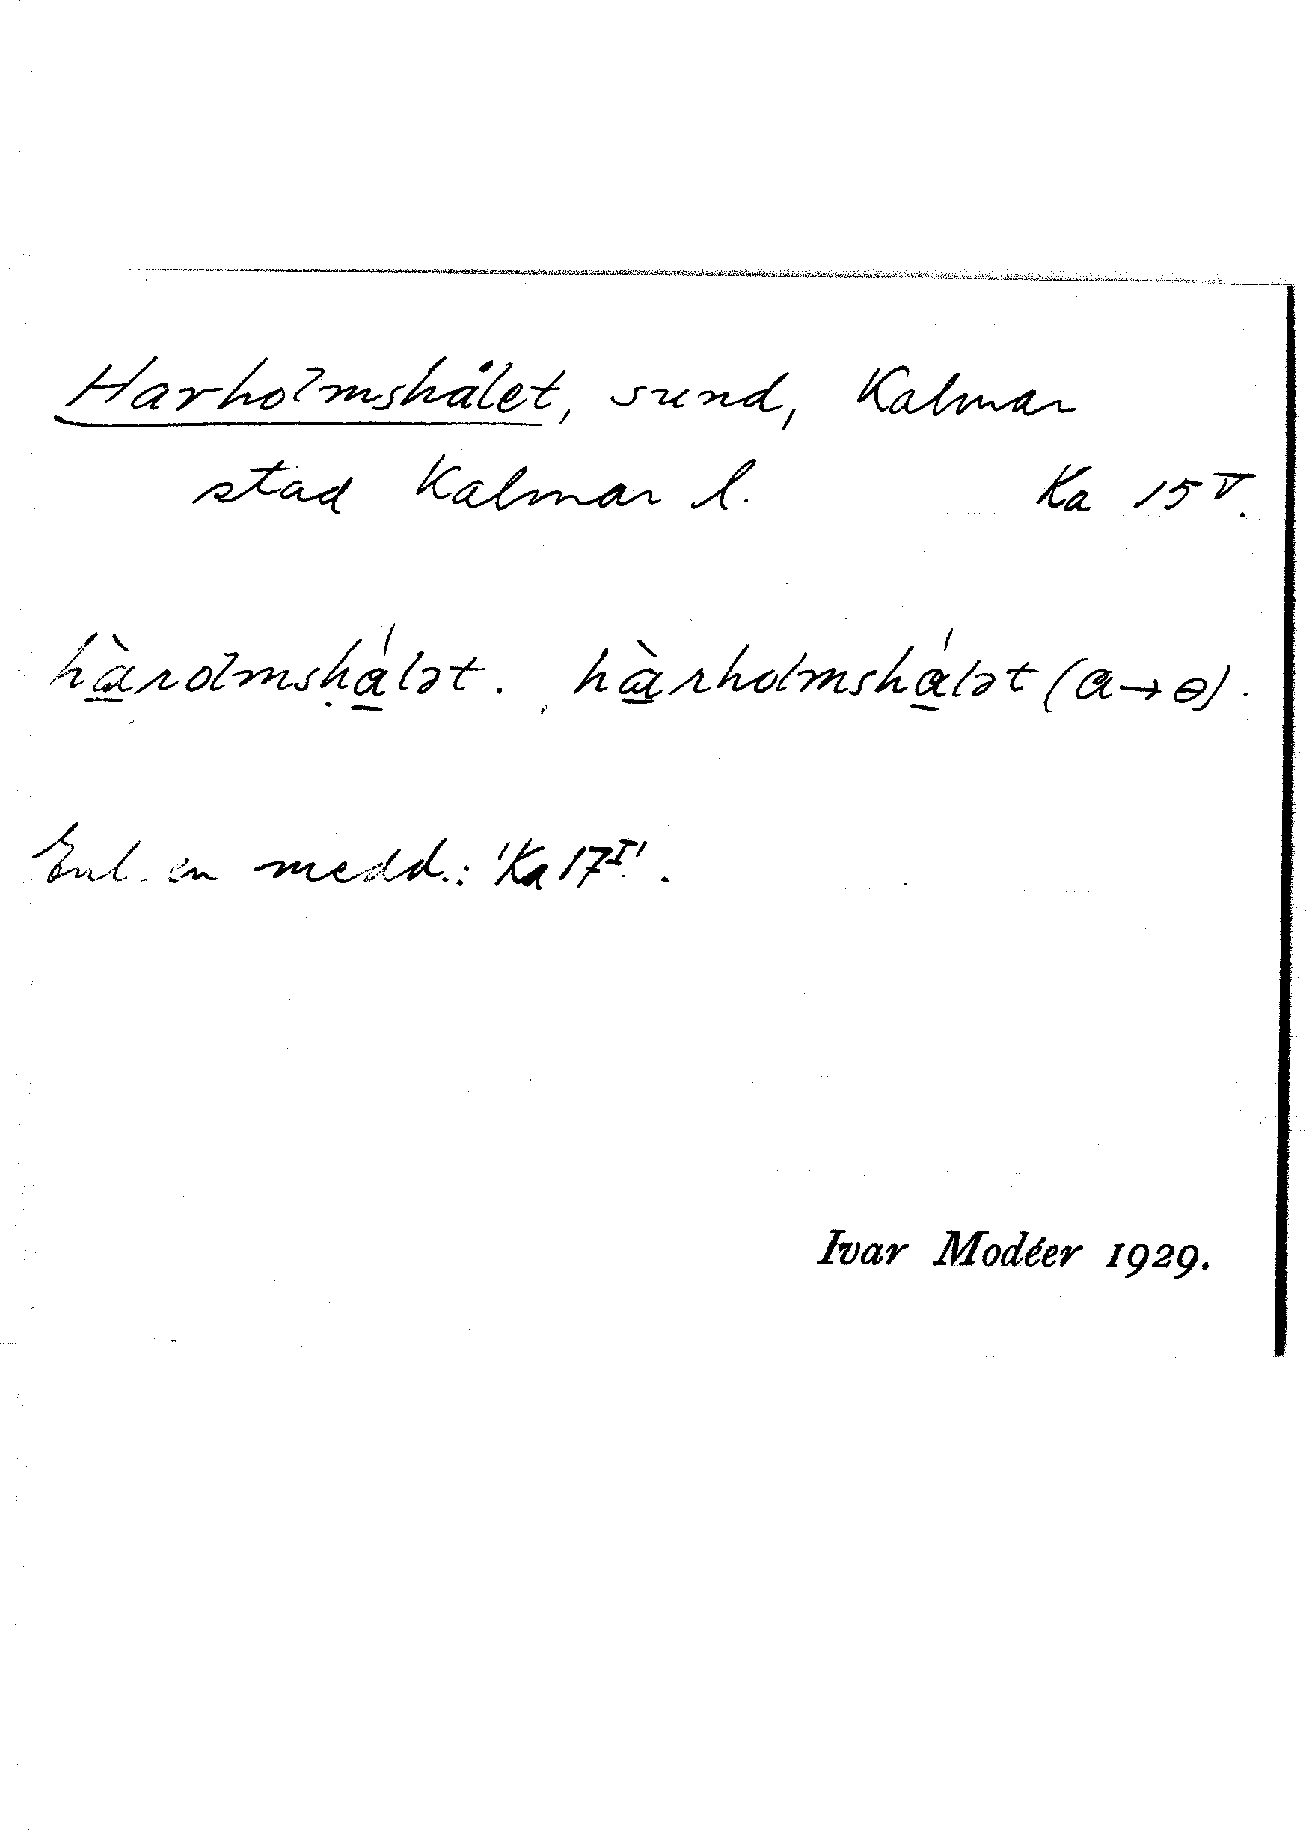 Harholmshålet, sund, Kalmar
stad Kalmar l. Ka 15 V.
hàrolmshálət. hàrholmshálət (a→ɵ).
Enl. en medd.: 'Ka 17 I'.
Ivar Modéer 1929.